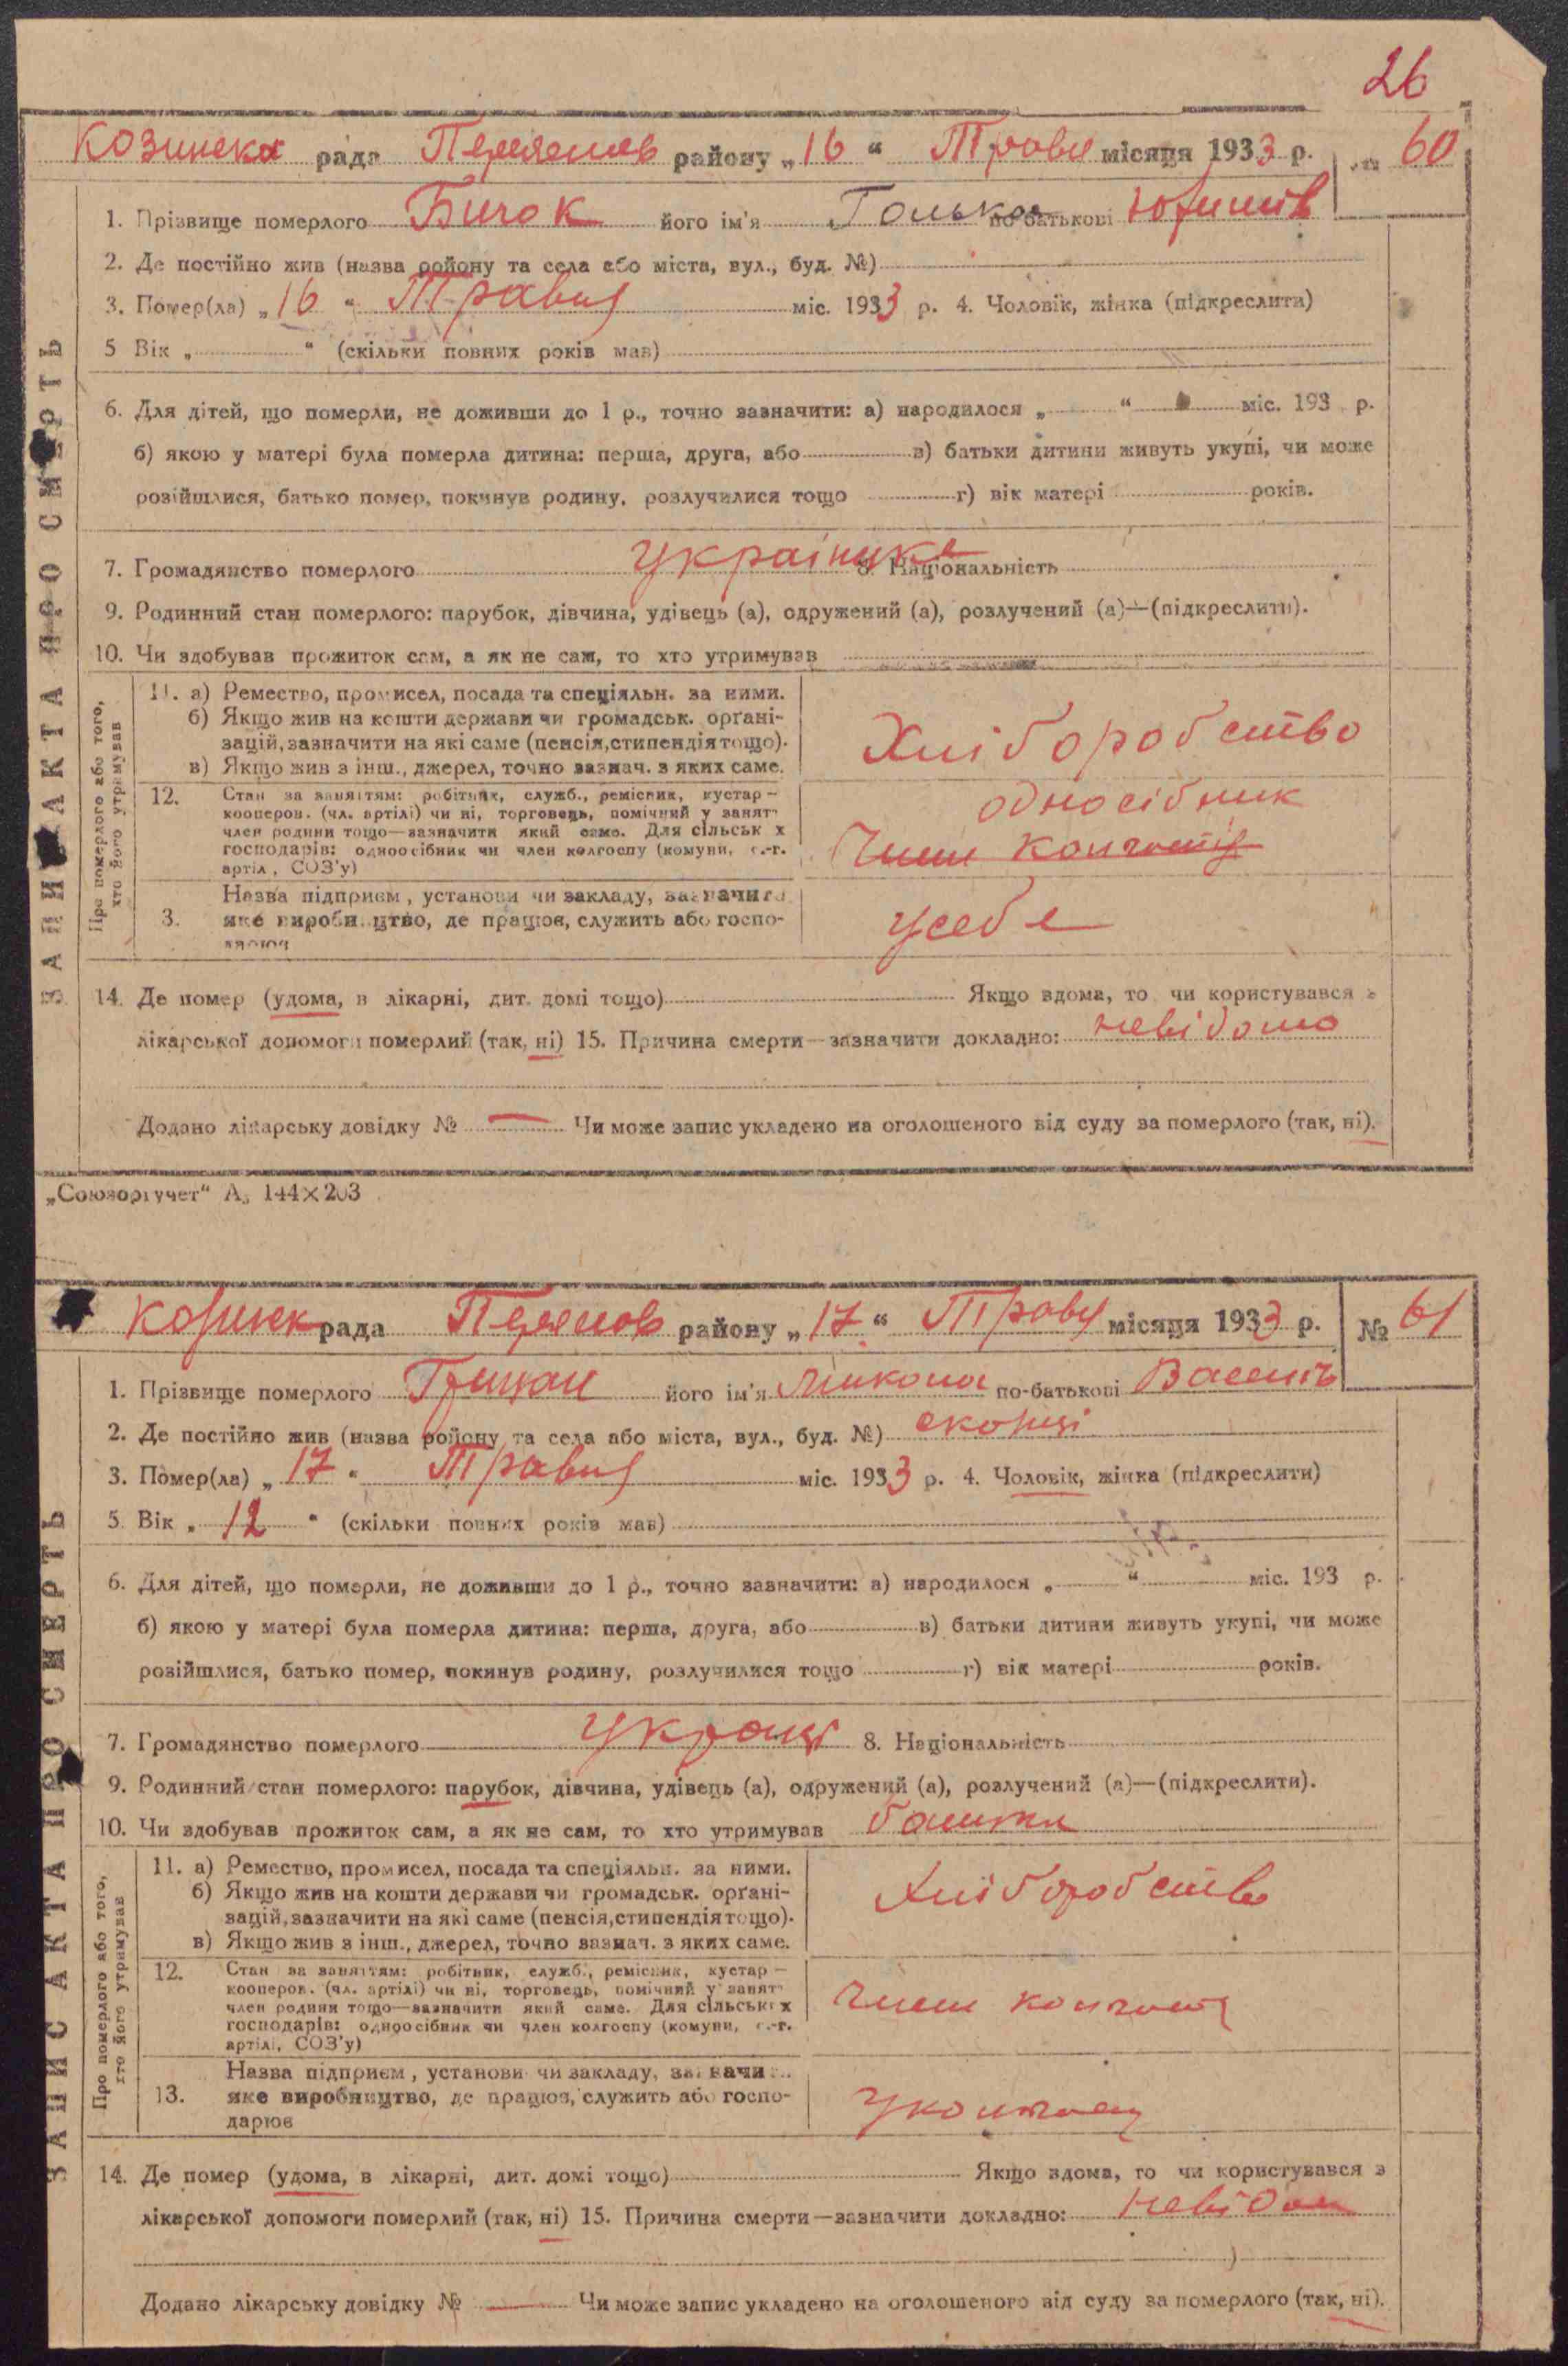 26
Козинска рада Переяслов району „16“ Травня місяця 1933 р. № 60
1. Прізвище померлого Бичок його ім'я по-батькові
2. Де постійно жив (назва району та села або міста, вул., буд. №)
3. Помер(ла) „16“ Травня міс. 1933 р. 4. Чоловік, жінка (підкреслити)
5 Вік „ “ (скільки повних років мав)
6. Для дітей, що померли, не доживши до 1 р., точно зазначити: а) народилося „ “ міс. 193 р.
б) якою у матері була померла дитина: перша, друга, або в) батьки дитини живуть укупі, чи може
розійшлися, батько помер, покинув родину, розлучилися тощо г) вік матері років.
7. Громадянство померлого українка 8. Національність
9. Родинний стан померлого: парубок, дівчина, удівець (а), одружений (а), розлучений (а)—(підкреслити).
10. Чи здобував прожиток сам, а як не сам, то хто утримував
ЗАПИС АКТА ПРО СМЕРТЬ
Про померлого або того,
хто його утримував
11. а) Ремество, промисел, посада та спеціяльн. за ними.
б) Якщо жив на кошти держави чи громадськ. орґані-
зацій, зазначити на які саме (пенсія, стипендія тощо).
в) Якщо жив з інш., джерел, точно зазнач. з яких саме.
Хліборобство
12. Стан за заняттям: робітник, служб., ремісник, кустар —
кооперов. (чл. артілі) чи ні, торговець, помічний у занят
член родини тощо—зазначити який саме. Для сільськ х
господарів: одноосібник чи член колгоспу (комуни, с.-г.
артіл, СОЗ'у)
односібник
Член колгоспу
3. Назва підприєм, установи чи закладу, зазначити
яке виробництво, де працює, служить або госпо-
дарює
усебе
14. Де помер (удома, в лікарні, дит. домі тощо) Якщо вдома, то чи користувався з
лікарської допомоги померлий (так, ні) 15. Причина смерти—зазначити докладно: невідомо
Додано лікарську довідку № — Чи може запис укладено на оголошеного від суду за померлого (так, ні).
„Союзоргучет“ А₅ 144×203
рада Переяслов району „17“ Травня місяця 1933 р. № 61
1. Прізвище померлого Грицан його ім'я Микола по-батькові
2. Де постійно жив (назва району та села або міста, вул., буд. №)
3. Помер(ла) „17“ Травня міс. 1933 р. 4. Чоловік, жінка (підкреслити)
5. Вік „12“ (скільки повних років мав)
6. Для дітей, що померли, не доживши до 1 р., точно зазначити: а) народилося „ “ міс. 193 р.
б) якою у матері була померла дитина: перша, друга, або в) батьки дитини живуть укупі, чи може
розійшлися, батько помер, покинув родину, розлучилися тощо г) вік матері років.
7. Громадянство померлого 8. Національність
9. Родинний стан померлого: парубок, дівчина, удівець (а), одружений (а), розлучений (а)—(підкреслити).
10. Чи здобував прожиток сам, а як не сам, то хто утримував батьки
ЗАПИС АКТА ПРО СМЕРТЬ
Про померлого або того,
хто його утримував
11. а) Ремество, промисел, посада та спеціяльн. за ними.
б) Якщо жив на кошти держави чи громадськ. орґані-
зацій, зазначити на які саме (пенсія, стипендія тощо).
в) Якщо жив з інш., джерел, точно зазнач. з яких саме.
Хліборобство
12. Стан за заняттям: робітник, служб., ремісник, кустар —
кооперов. (чл. артілі) чи ні, торговець, помічний у занят
член родини тощо—зазначити який саме. Для сільських
господарів: одноосібник чи член колгоспу (комуни, с.-г.
артілі, СОЗ'у)
Член колгоспу
13. Назва підприєм, установи чи закладу, зазначи
яке виробництво, де працює, служить або госпо-
дарює
уколгоспу
14. Де помер (удома, в лікарні, дит. домі тощо) Якщо вдома, то чи користувався з
лікарської допомоги померлий (так, ні) 15. Причина смерти—зазначити докладно: невідом
Додано лікарську довідку № — Чи може запис укладено на оголошеного від суду за померлого (так, ні).